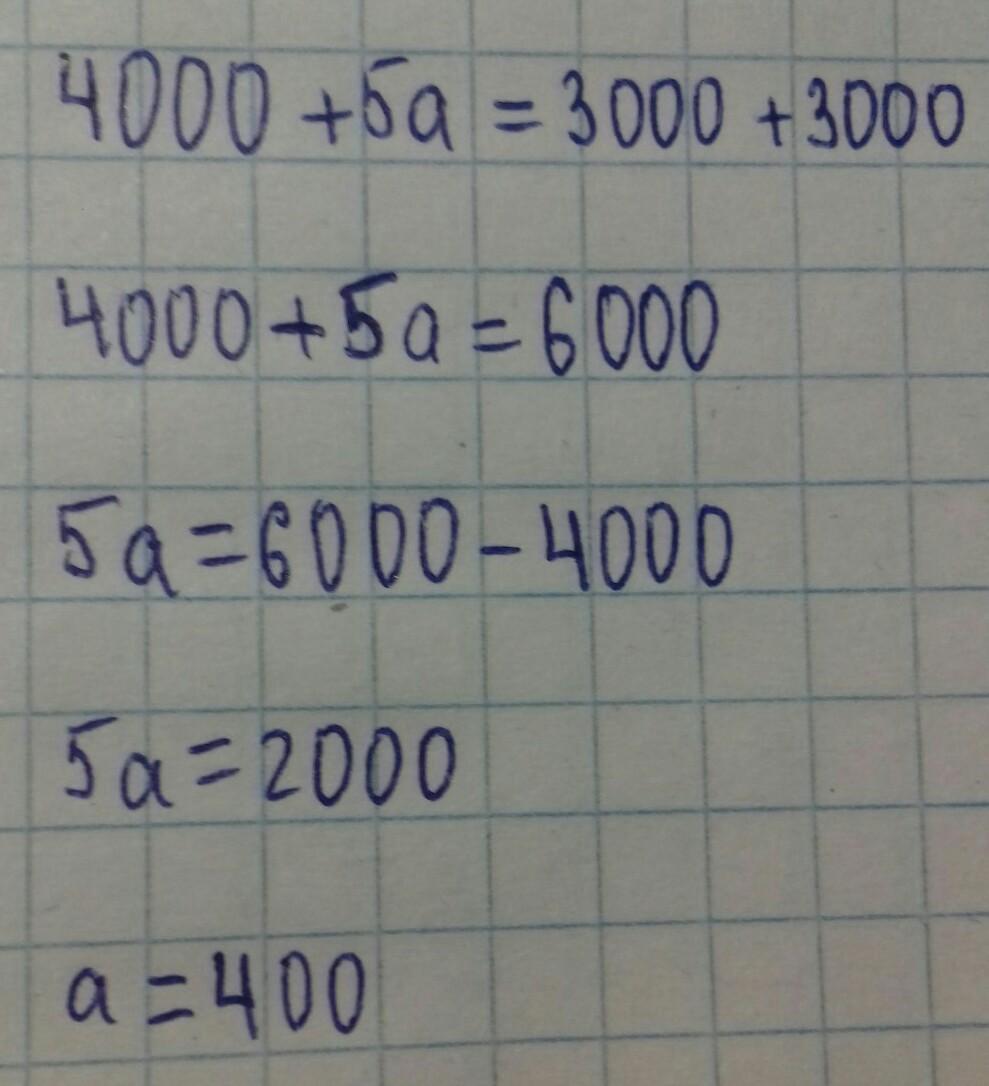 4000 + 5a = 3000 + 3000
4000 + 5a = 6000
5a = 6000 - 4000
5a = 2000
a = 400